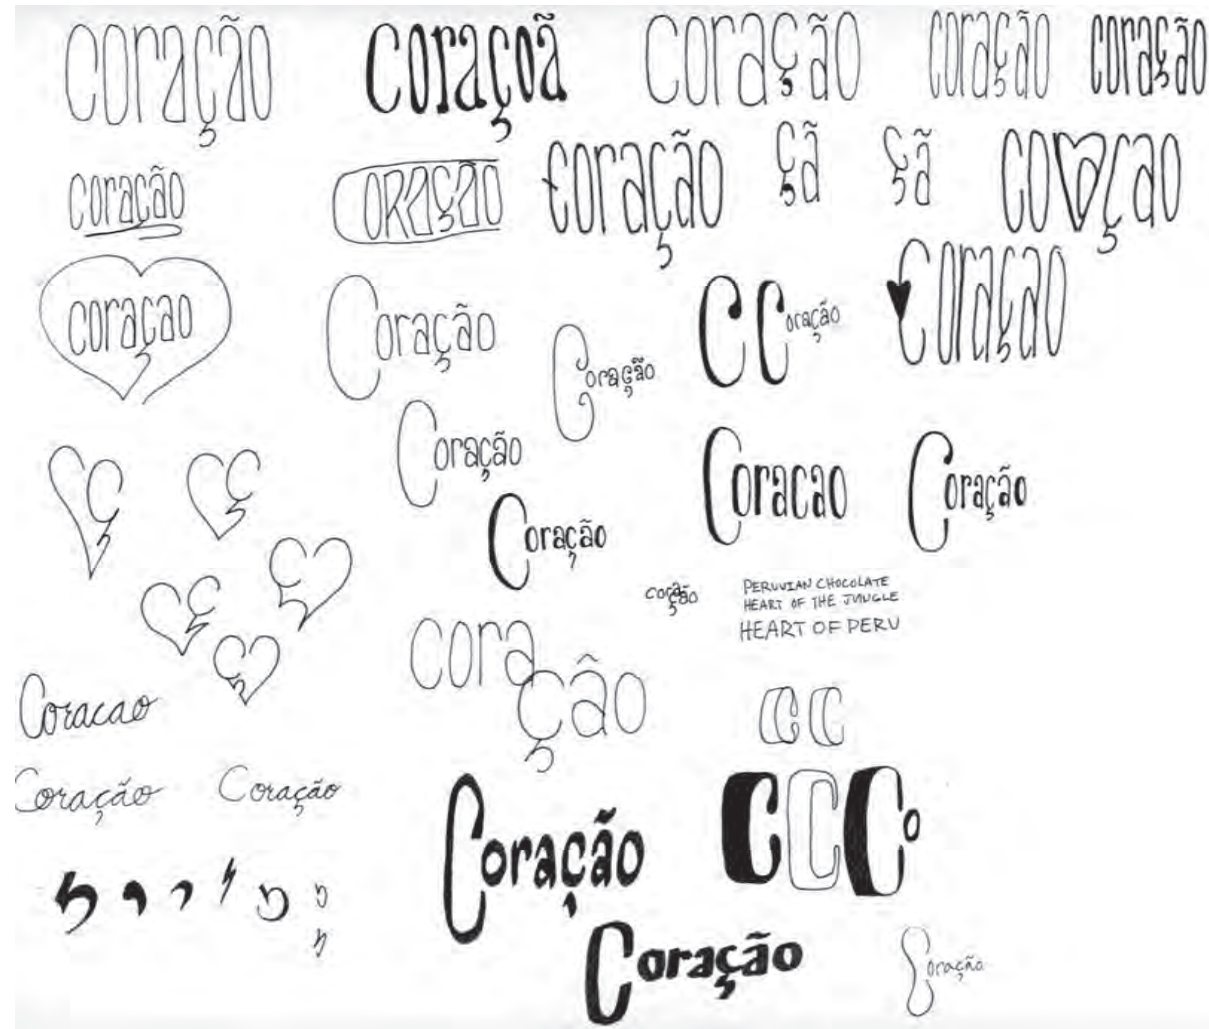 coração
coraçoã
coração
coração
coração
coração
CORAÇÃO
coração
çã
çã
coraçao
coraçao
Coração
Coração
C Coração
Coraçao
Coração
Coracao
Coração
Coração
coração
PERUVIAN CHOCOLATE
HEART OF THE JUNGLE
HEART OF PERU
cora
ção
Coracao
C C
Coração
Coração
Coração
C C Co
Coração
Coração